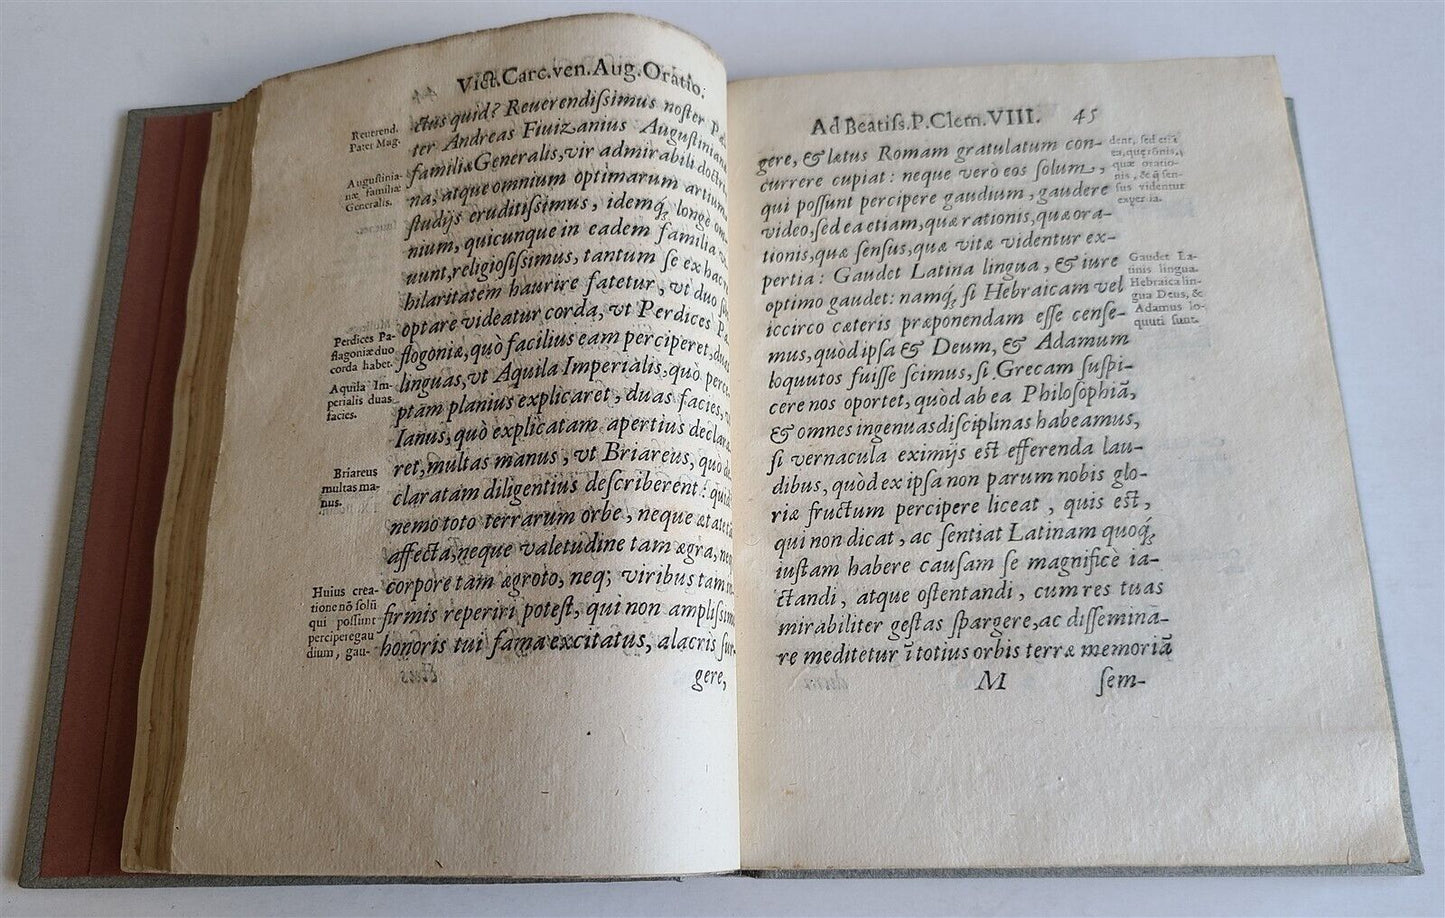 Vict. Carc. ven. Aug. Oratio.
ctus quid? Reuerendiſsimus noſter
ter Andreas Fiuizanius Auguſtinian
familiæ Generalis, vir admirabili doctri
na, atque omnium optimarum artium
ſtudijs eruditiſsimus, idemq́; longè om
nium, quicunque in eadem familia
uunt, religioſiſsimus, tantum ſe ex hac
hilaritatem haurire fatetur, vt duo
optare videatur corda, vt Perdices
flogoniæ, quò facilius eam perciperet, duas
linguas, vt Aquila Imperialis, quò perce
ptam planius explicaret, duas facies,
Ianus, quò explicatam apertius declara
ret, multas manus, vt Briareus, quò de
claratam diligentius deſcriberent: quid
nemo toto terrarum orbe, neque ætate
affecta, neque valetudine tam ægra, ne
corpore tam ægroto, neq; viribus tam
firmis reperiri poteſt, qui non ampliſsimi
honoris tui fama excitatus, alacris ſur-
gere,
Reuerend.
Pater Mag.
Auguſtinia-
næ familiæ
Generalis.
Perdices Pa-
flagoniæ duo
corda habet.
Aquila Im-
perialis duas
facies.
Briareus
multas ma-
nus.
Huius crea-
tione nõ ſolũ
qui poſſunt
percipere gau
dium, gau-
Ad Beatiſs. P. Clem. VIII. 45
gere, & lætus Romam gratulatum con-
currere cupiat: neque verò eos ſolum,
qui poſſunt percipere gaudium, gaudere
video, ſed ea etiam, quæ rationis, quæ ora-
tionis, quæ ſenſus, quæ vitæ videntur ex-
pertia: Gaudet Latina lingua, & iure
optimo gaudet: namq́; ſi Hebraicam vel
iccirco cæteris præponendam eſſe cenſe-
mus, quòd ipſa & Deum, & Adamum
loquutos fuiſſe ſcimus, ſi Grecam ſuſpi-
cere nos oportet, quòd ab ea Philoſophiã,
& omnes ingenuas diſciplinas habeamus,
ſi vernacula eximijs eſt efferenda lau-
dibus, quòd ex ipſa non parum nobis glo-
riæ fructum percipere liceat, quis eſt,
qui non dicat, ac ſentiat Latinam quoq́;
iuſtam habere cauſam ſe magnificè ia-
ctandi, atque oſtentandi, cum res tuas
mirabiliter geſtas ſpargere, ac diſſemina-
re meditetur ĩ totius orbis terræ memoriã
M ſem-
dent, ſed etiã
ea, quę rõnis,
quæ oratio-
nis, & q̃ ſen-
ſus videntur
Gaudet La-
tinis lingua.
Hebraica lin-
gua Deus, &
Adamus lo-
quuti ſunt.